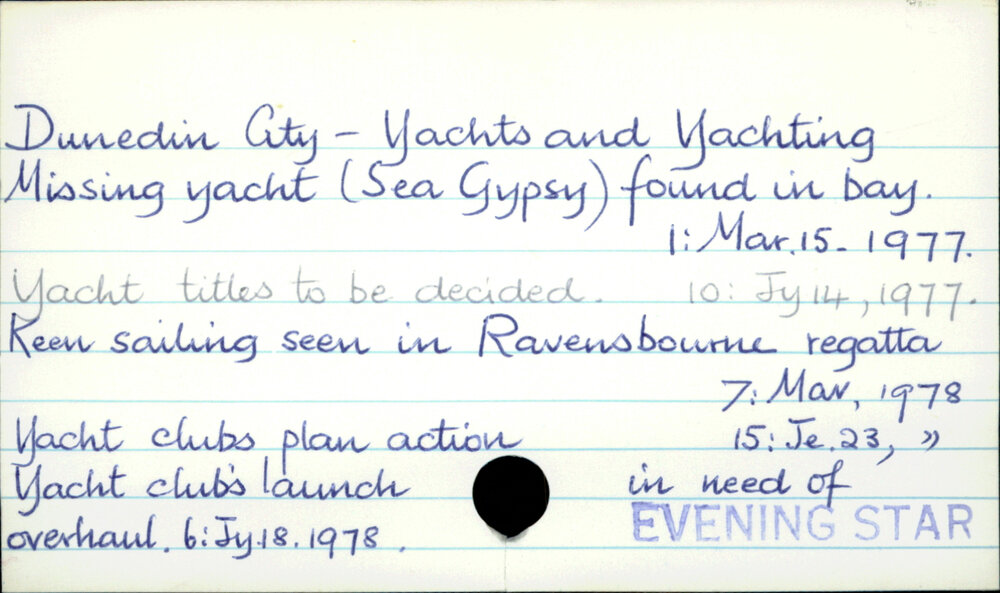 Dunedin City – Yachts and Yachting
Missing yacht (Sea Gypsy) found in bay.
1: Mar. 15. 1977.
Yacht titles to be decided. 10: Jy 14, 1977.
Keen sailing seen in Ravensbourne regatta
7: Mar, 1978
Yacht clubs plan action 15: Je. 23, "
Yacht club's launch in need of
overhaul. 6: Jy. 18. 1978.
EVENING STAR